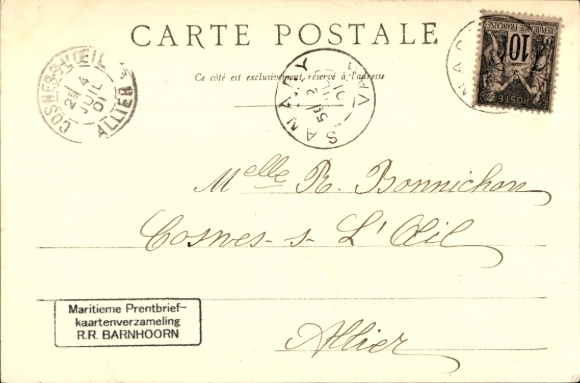 CARTE POSTALE
Ce côté est exclusivement réservé à l'adresse
COSNE-S-L'ŒIL
2E
4
JUIL
01
ALLIER
SANARY
2
01
VAR
10
POSTE
Melle R. Bonnichon
Cosnes-s-L'Œil
Allier
Maritieme Prentbrief-
kaartenverzameling
R.R. BARNHOORN